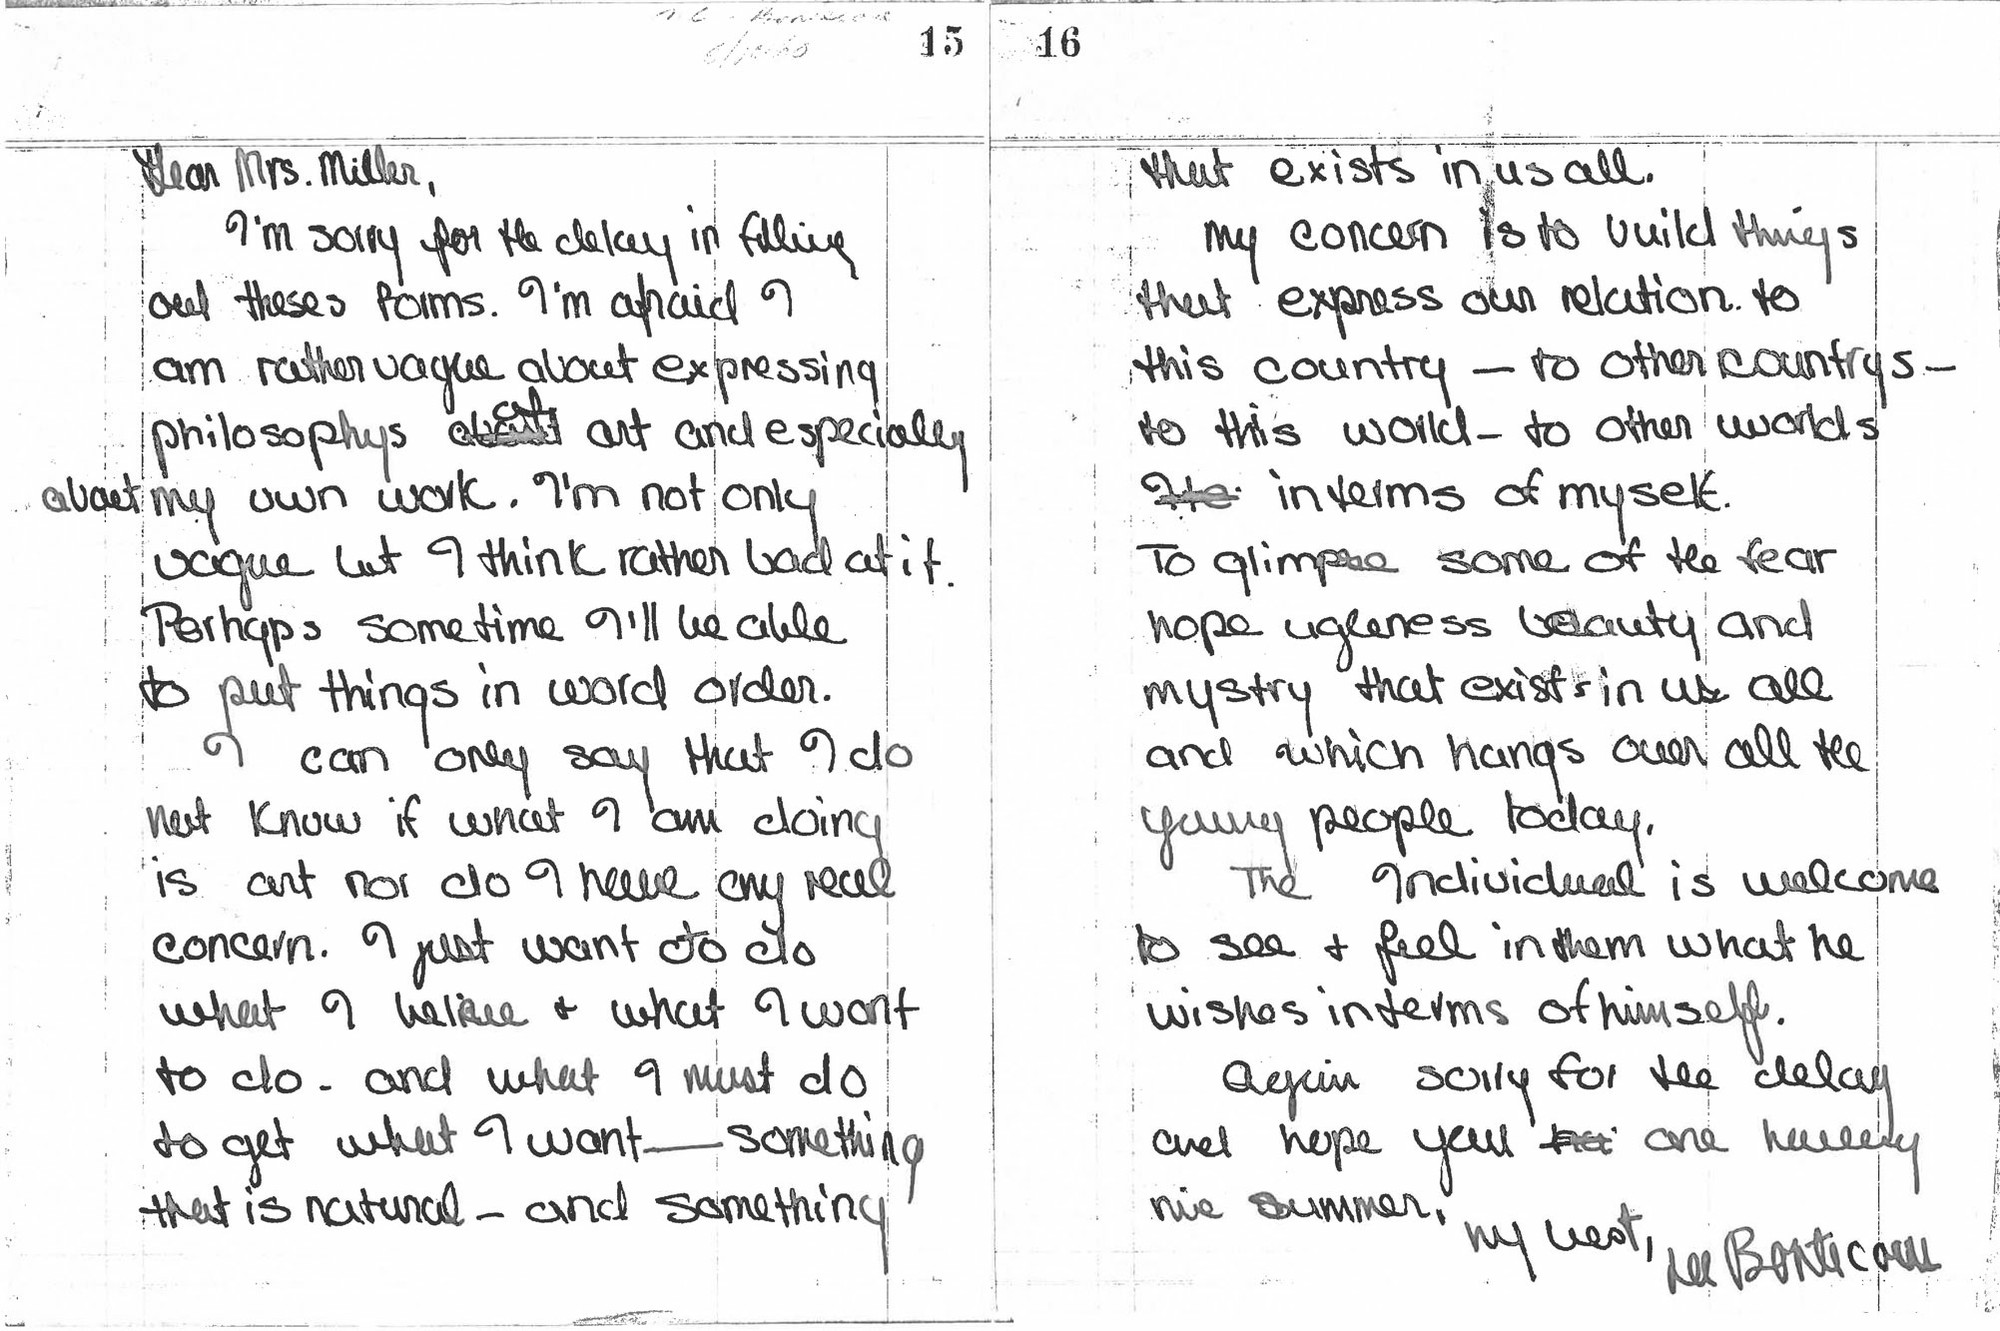 15
Dear Mrs. Miller,
I'm sorry for the delay in filling
out theses forms. I'm afraid I
am rather vague about expressing
philosophys art and especially
about my own work. I'm not only
vague but I think rather bad at it.
Perhaps sometime I'll be able
to put things in word order.
I can only say that I do
not know if what I am doing
is art nor do I have any real
concern. I just want to do
what I believe + what I want
to do - and what I must do
to get what I want — something
that is natural - and something
16
that exists in us all.
My concern is to build things
that express our relation to
this country — to other countrys —
to this world - to other worlds
in terms of myself.
To glimpse some of the fear
hope ugleness beauty and
mystry that exists in us all
and which hangs over all the
young people today.
The Individual is welcome
to see + feel in them what he
wishes in terms of himself.
Again sorry for the delay
and hope your are having
nice summer.
My best,
Lee Bontecou